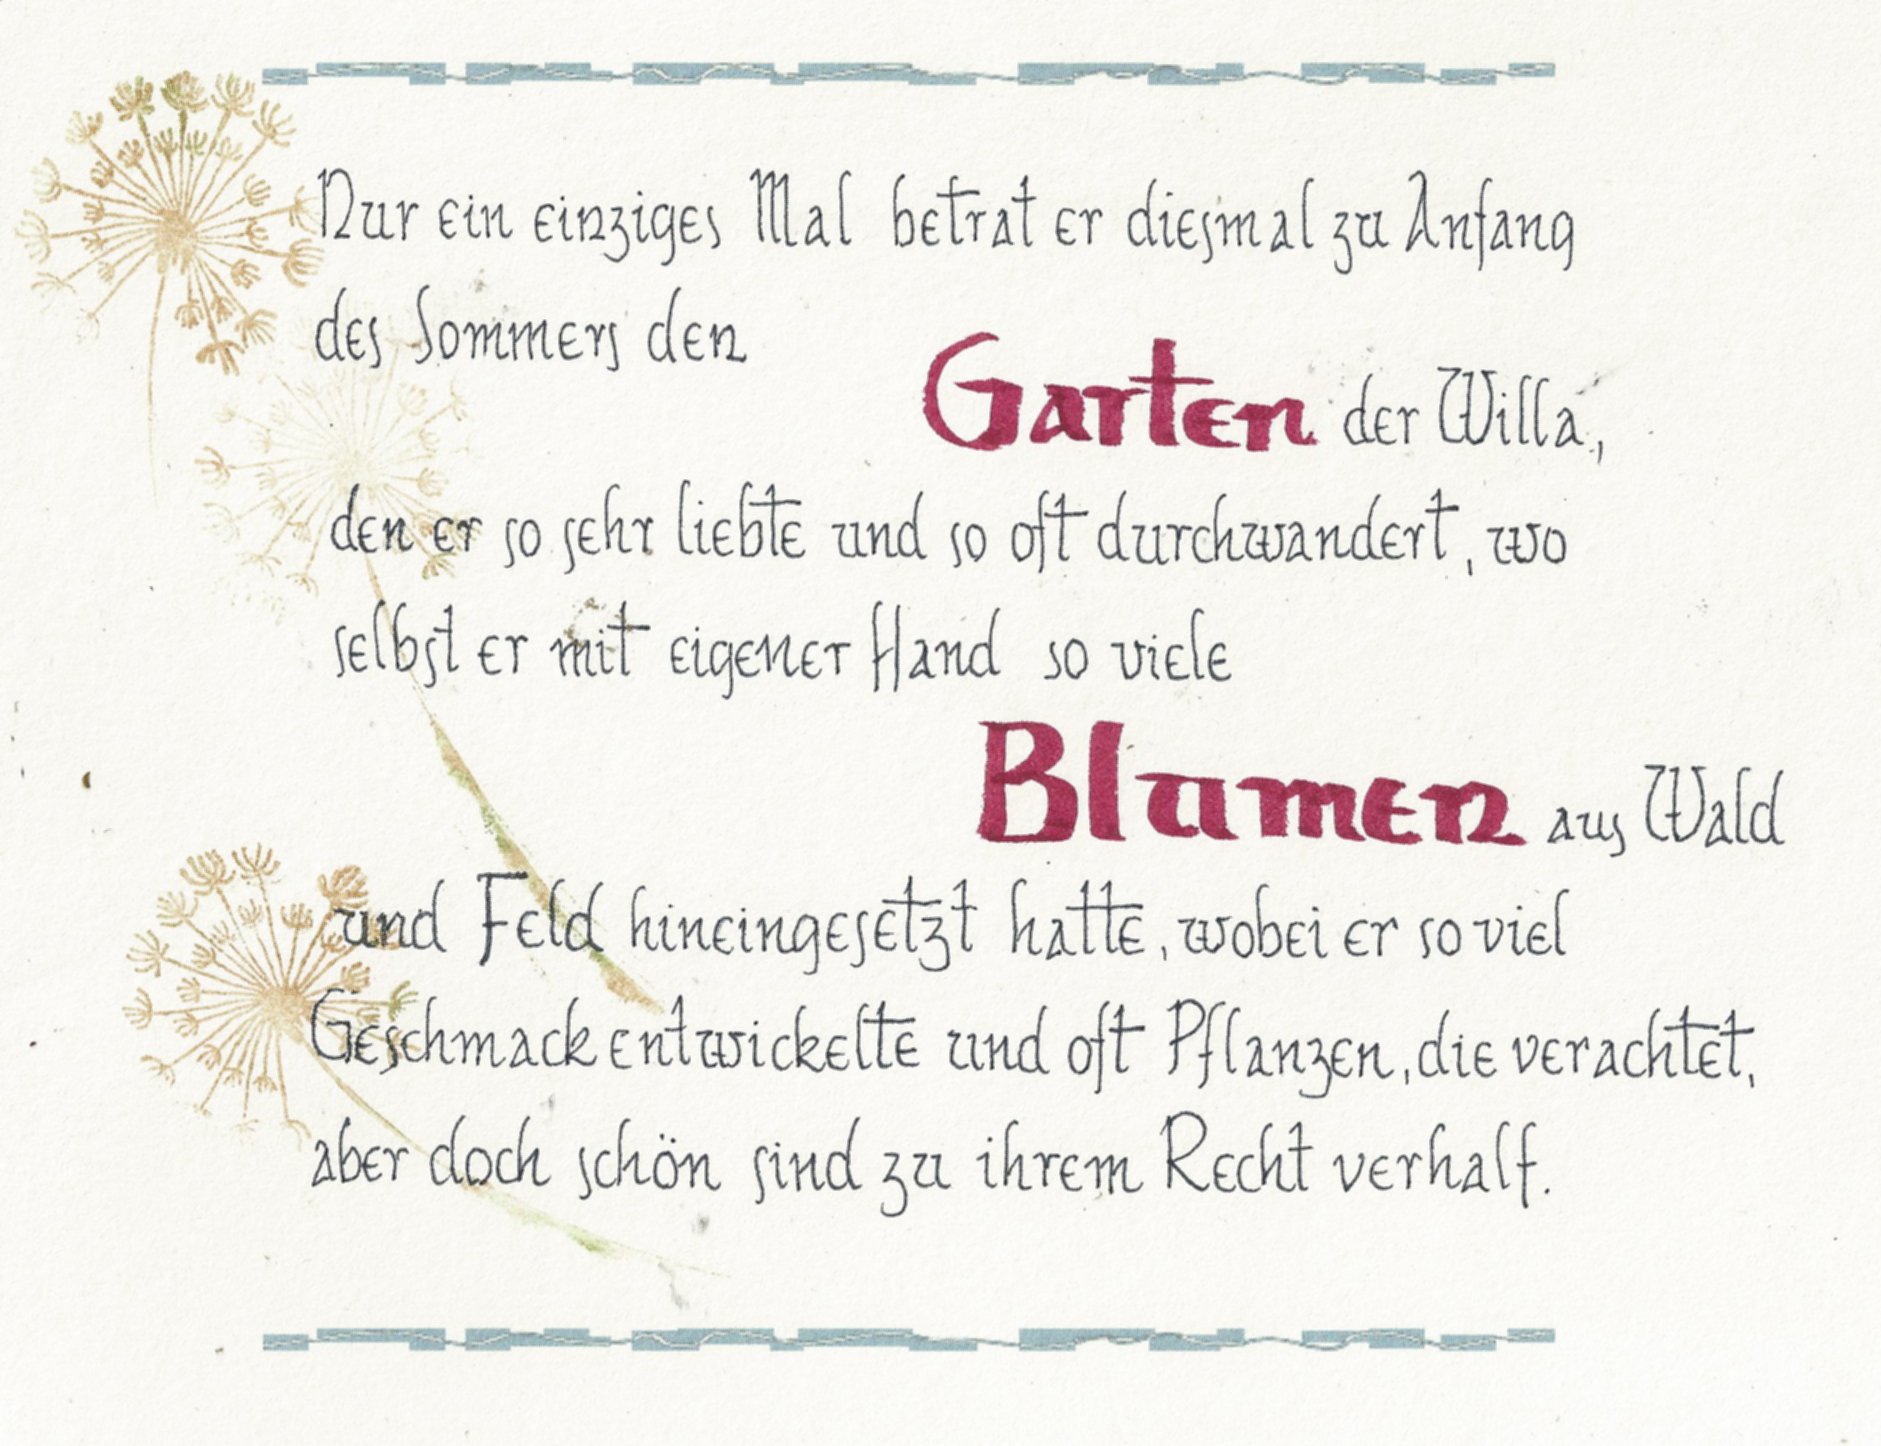 Nur ein einziges Mal betrat er diesmal zu Anfang
des Sommers den
Garten der Willa,
den er so sehr liebte und so oft durchwandert, wo
selbst er mit eigener Hand so viele
Blumen aus Wald
und Feld hineingesetzt hatte, wobei er so viel
Geschmack entwickelte und oft Pflanzen, die verachtet,
aber doch schön sind zu ihrem Recht verhalf.